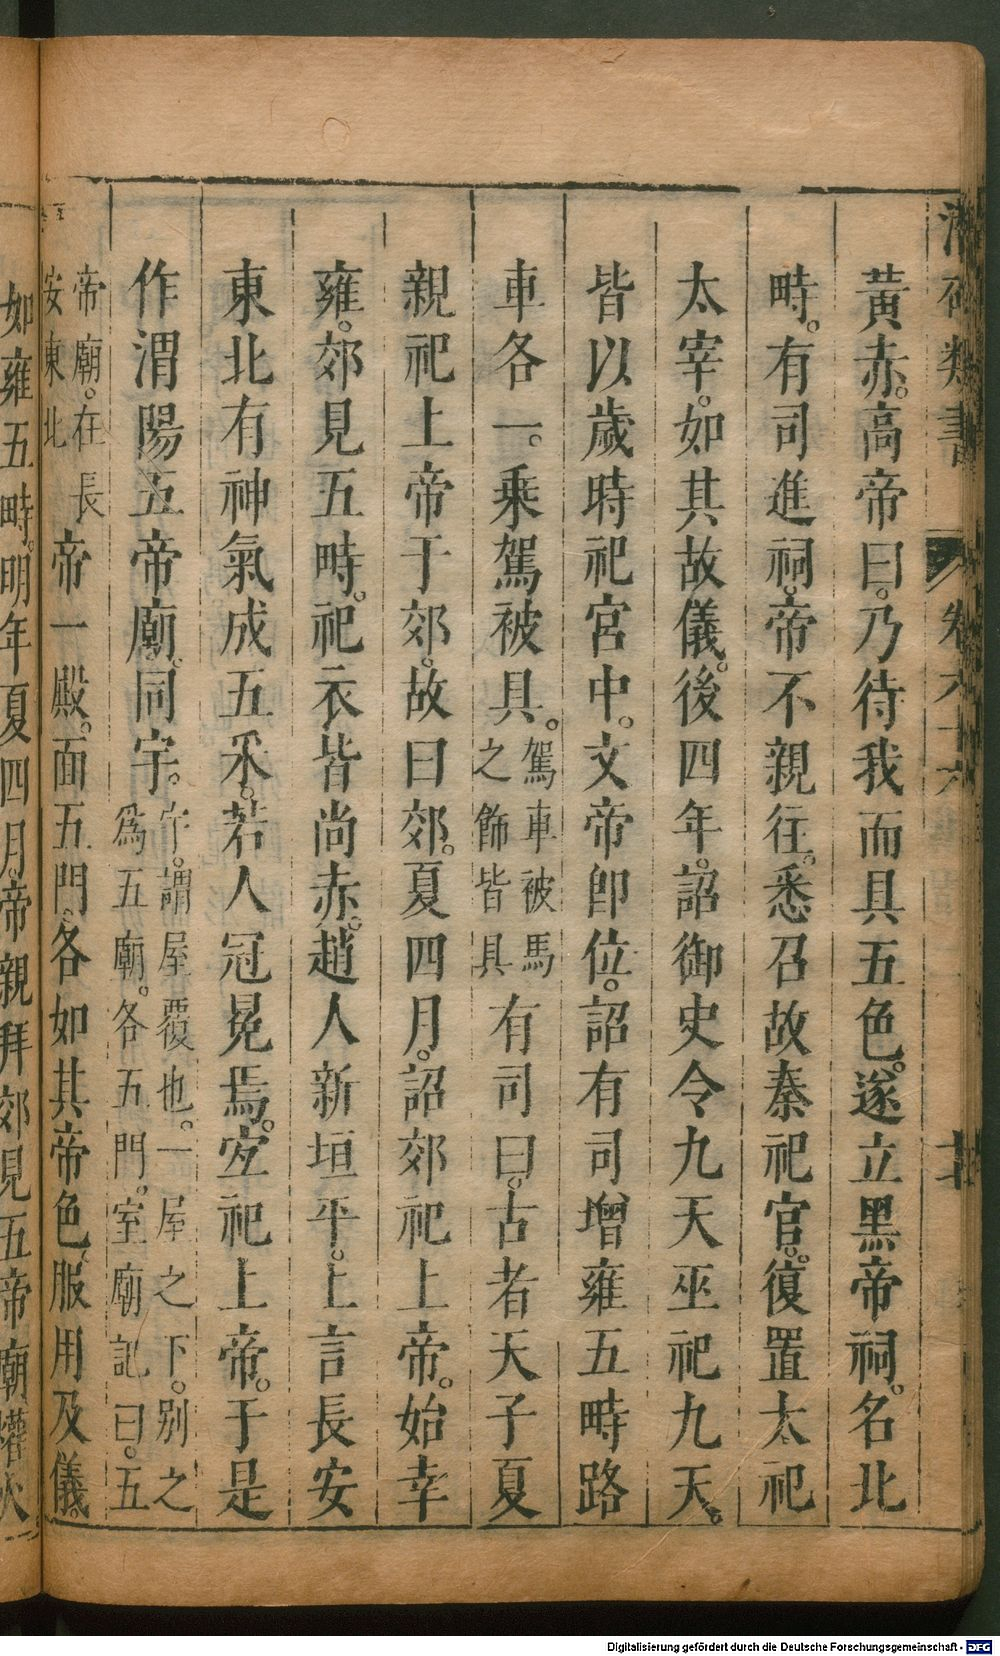 潛確類書 卷六十六
黃赤。高帝曰。乃待我而具五色。遂立黑帝祠。名北
畤。有司進祠。帝不親往。悉召故秦祀官。復置太祀
太宰。如其故儀。後四年。詔御史令九天巫祀九天。
皆以歲時祀宮中。文帝卽位。詔有司增雍五畤路
車各一。乘駕被具。駕車被馬之飾皆具有司曰。古者天子夏
親祀上帝于郊。故曰郊。夏四月。詔郊祀上帝。始幸
雍。郊見五畤。祀衣皆尚赤。趙人新垣平。上言長安
東北有神氣成五采。若人冠冕焉。宜祀上帝。于是
作渭陽五帝廟。同宇。宇。謂屋覆也。一屋之下。別之為五廟。各五門。室廟記曰。五
帝廟。在長安東北帝一殿。面五門。各如其帝色。服用及儀。
如雍五畤。明年夏四月。帝親拜郊見五帝廟爟火
Digitalisierung gefördert durch die Deutsche Forschungsgemeinschaft - DFG